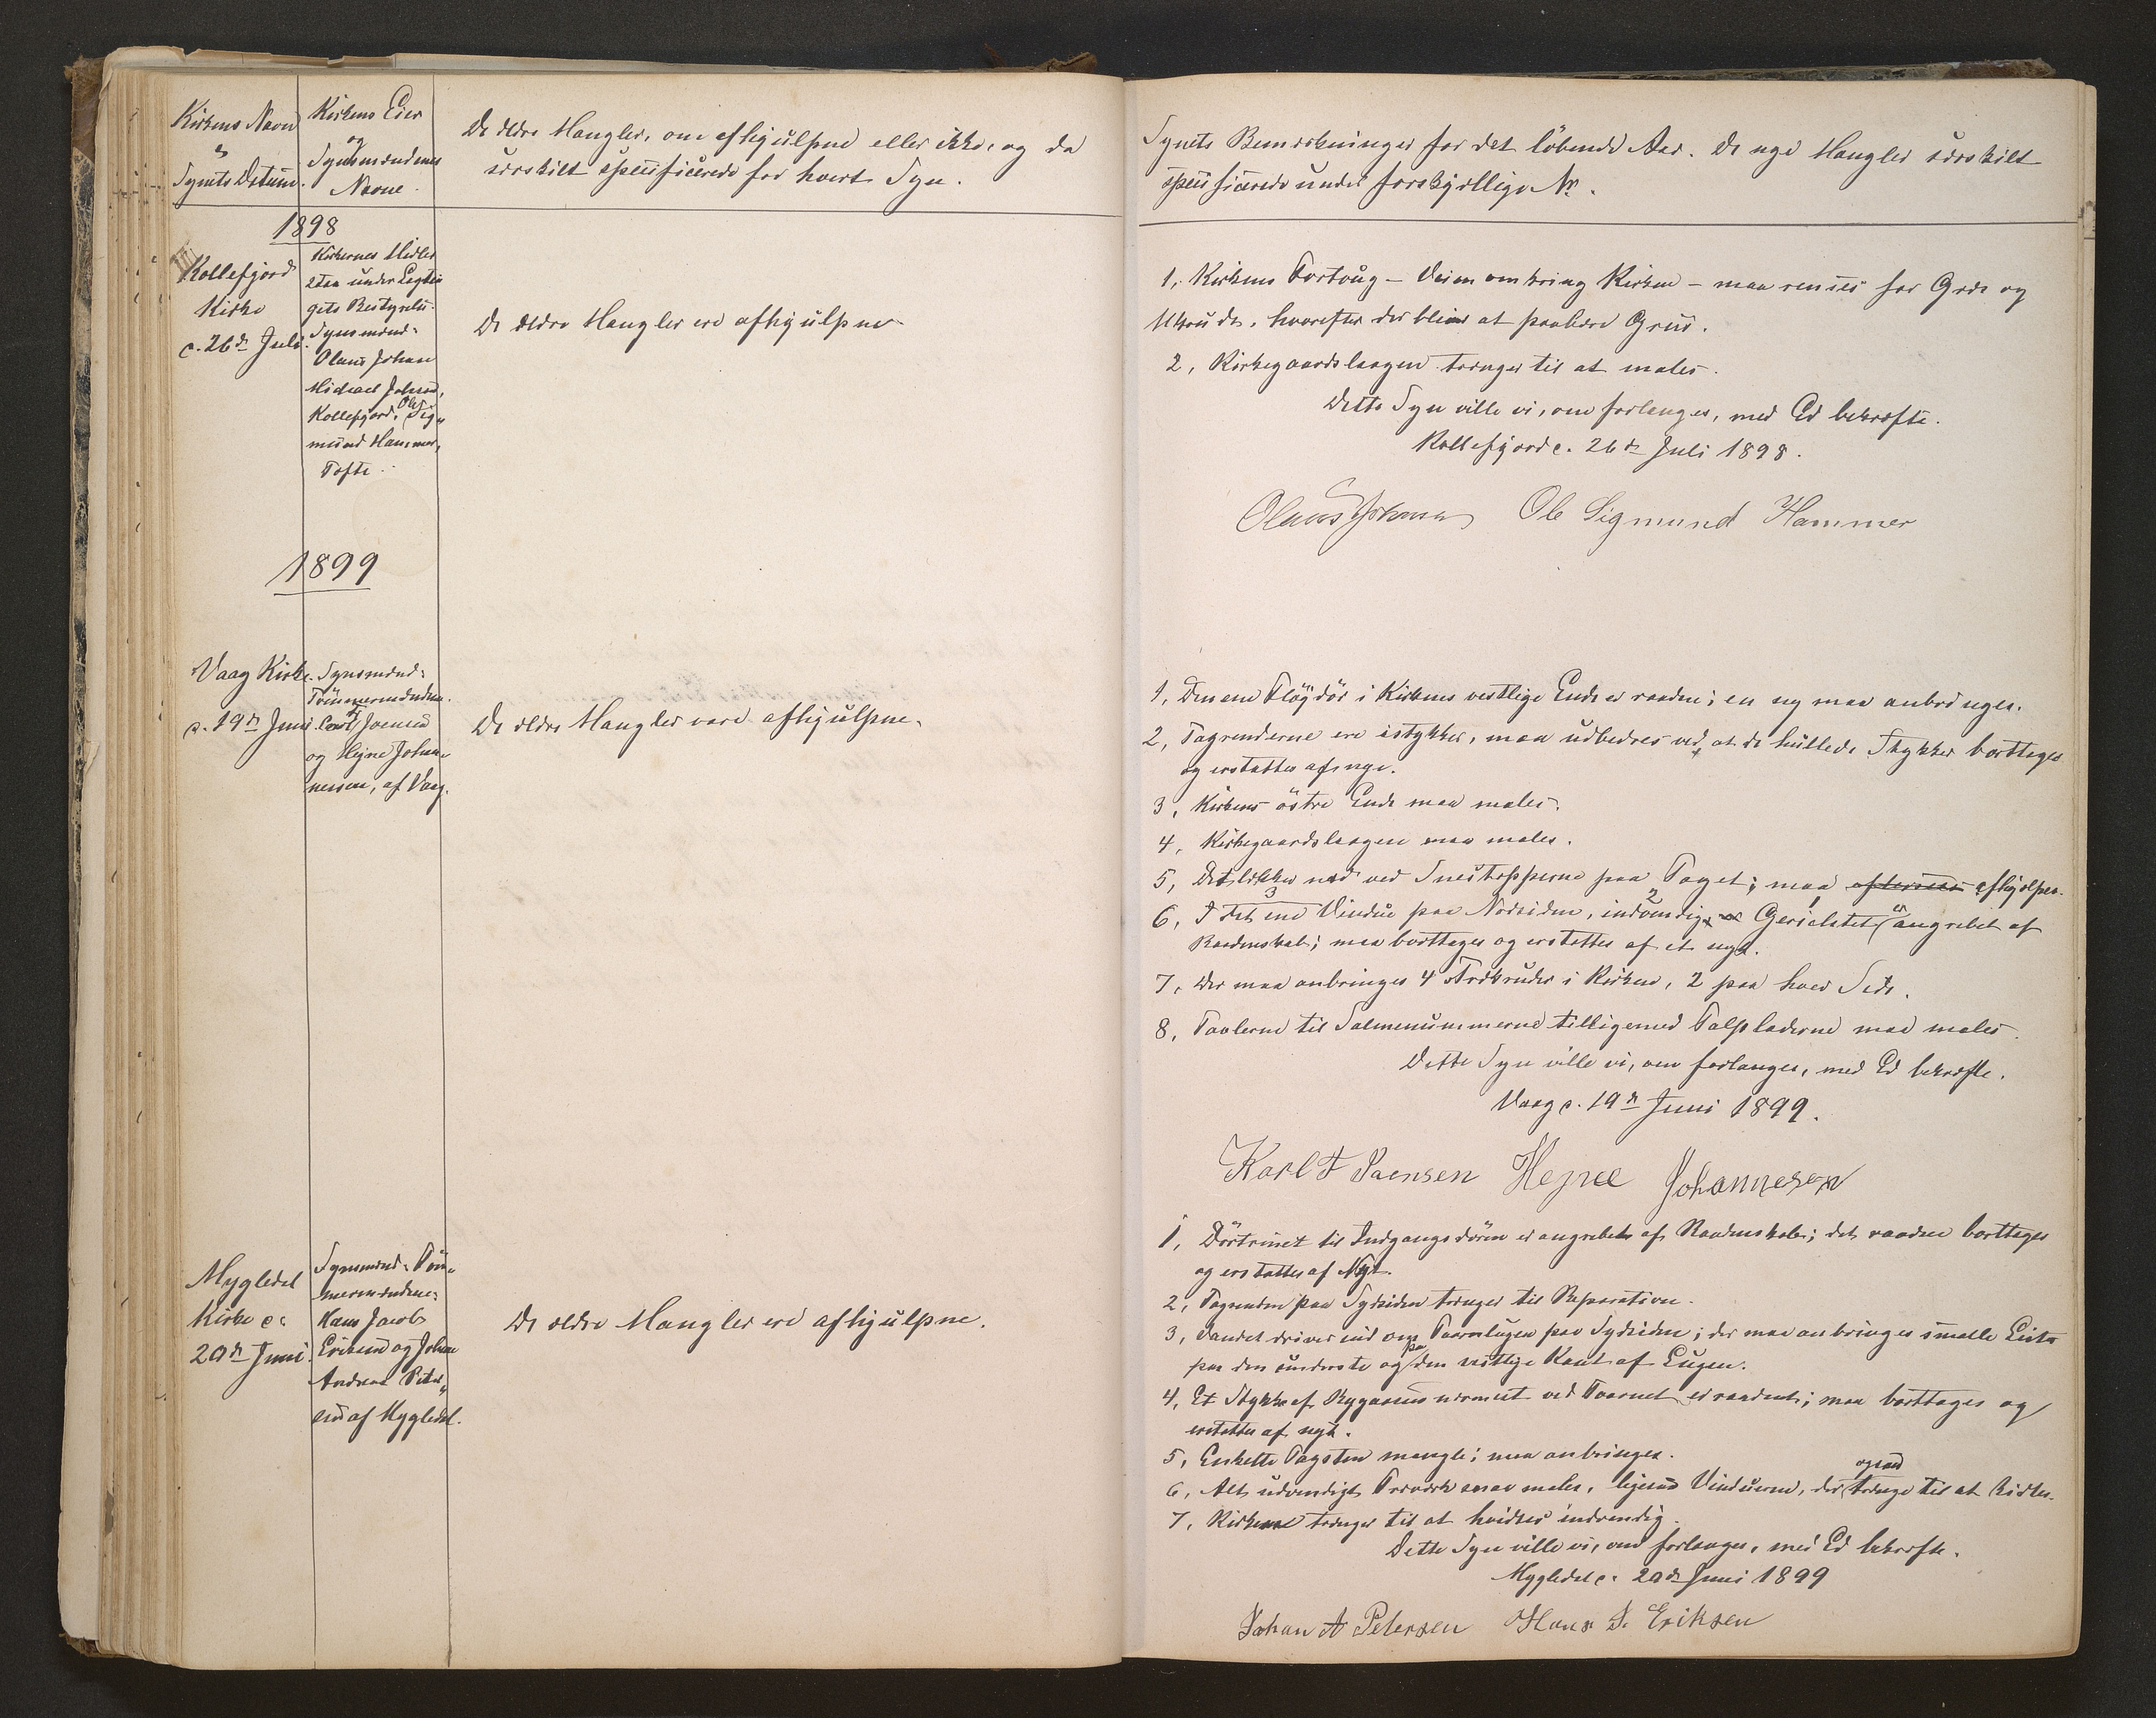 Kirkens Navn
&
Synets Datum.
Kirkens Eier
og
Synsmændenes
Navne.
De ældre Mangler, om afhjulpne eller ikke, og da
særskilt specificerede for hvert Syn.
1898
Kollefjord
Kirke
d. 26de Juli.
Kirkernes Midler
staa under Lagtin
gets Bestyrelse.
Synsmænd:
Olaus Johan
Michael Johnsen,
Kollefjord, Ole Sig„
mund Hammer,
Tofte.
De ældre Mangler ere afhjulpne
1899
Vaag Kirke
d. 19de Juni
Synsmænd:
Tömmermændene
Carl F Joensen
og Hejne Johan„
nessen, af Vaag.
De ældre Mangler vare afhjulpne.
Mygledal
Kirke d:
20de Juni.
Synsmænd: Töm„
mermændene:
Hans Jacob
Eriksen og Johan
Andreas Peter„
sen af Mygledal.
De ældre Mangler ere afhjulpne.
Synets Bemærkninger for det löbende Aar. De nye Mangler særskilt
specificerede under forskjellige Nr.
1, Kirkens Fortoug – Veien omkring Kirken – maa renses for Græs og
Ukrudt, hvorefter der bliver at paaføre Grus.
2, Kirkegaardslaagen trænger til at males.
Dette Syn ville vi, om forlanges, med Ed bekræfte.
Kollefjord d. 26de Juli 1898.
Olaus Johnsen Ole Sigmund Hammer
1, Den ene Flöjdör i Kirkens vestlige Ende er raaden; en ny maa anbringes.
2, Tagrenderne ere istykker, maa udbedres ved, at de hullede Stykker borttages
og erstattes af nye.
3, Kirkens östre Ende maa males.
4, Kirkegaardslaagen maa males.
5, Det lækker ned ved Snestopperne paa Taget; maa afhjælpes.
6, I det ene Vindue paa Nordsiden, indvendig, Gerichtet er angrebet af
Raadenskab; maa borttages og erstattes af et nyt.
7, Der maa anbringes 4 Trækruder i Kirken, 2 paa hver Side.
8, Tavlerne til Salmenummerne tilligemed Talpladerne maa males.
Dette Syn ville vi, om forlanges, med Ed bekræfte.
Vaag d. 19de Juni 1899.
Karl F Joensen Hejne Johannesen
1, Dörtrinet til Indgangsdören er angrebet af Raadenskab; det raadne borttages
og erstattes af Nyt.
2, Tagrenden paa Sydsiden trænger til Reparation.
3, Vandet driver ind om Taarnlugen paa Sydsiden; der maa anbringes smalle Lister
paa den underste og paa den vestlige Kant af Lugen.
4, Et Stykke af Rygaasen nærmest ved Taarnet er raadent; maa borttages og
erstattes af nyt.
5, Enkelte Tagsten mangle; maa anbringes.
6, Alt udvendigt Træværk maa males, ligesaa Vinduerne, der ogsaa trænge til at kittes.
7, Kirken trænger til at hvidtes indvendig.
Dette Syn ville vi, om forlanges, med Ed bekræfte.
Mygledal d. 20de Juni 1899
Johan A Petersen Hans J. Eriksen